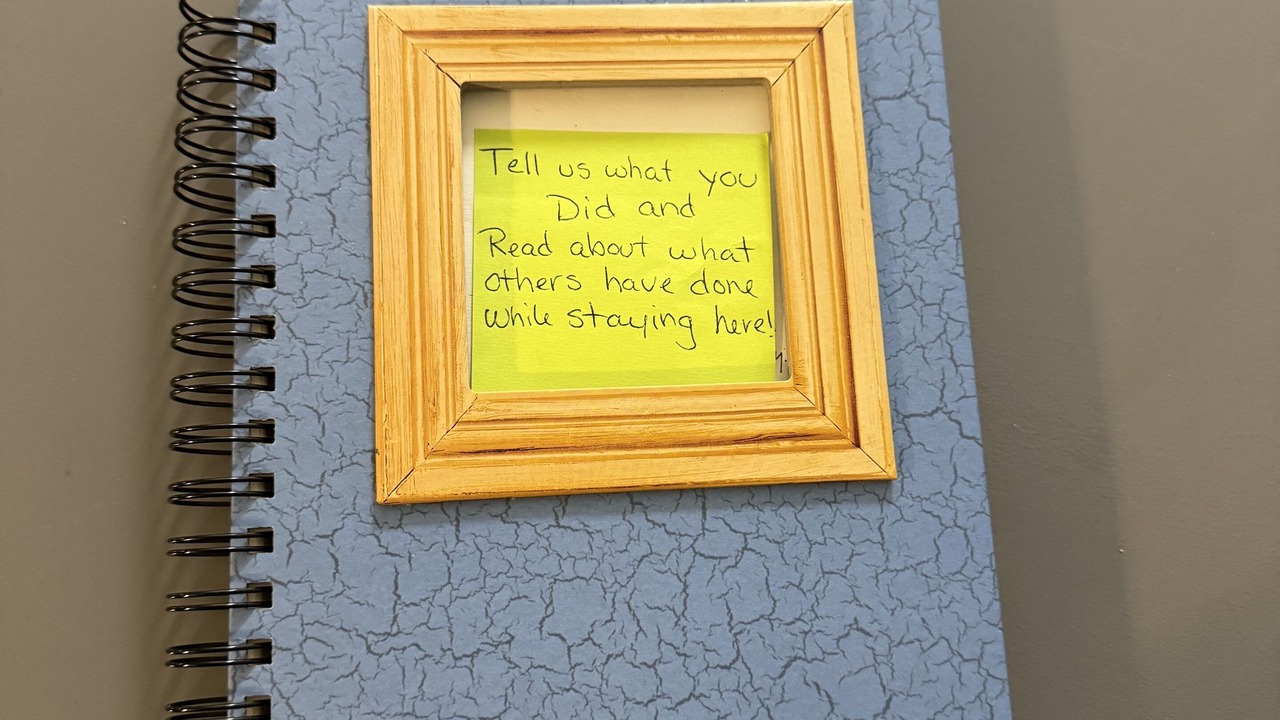 Tell us what you
Did and
Read about what
others have done
while staying here!